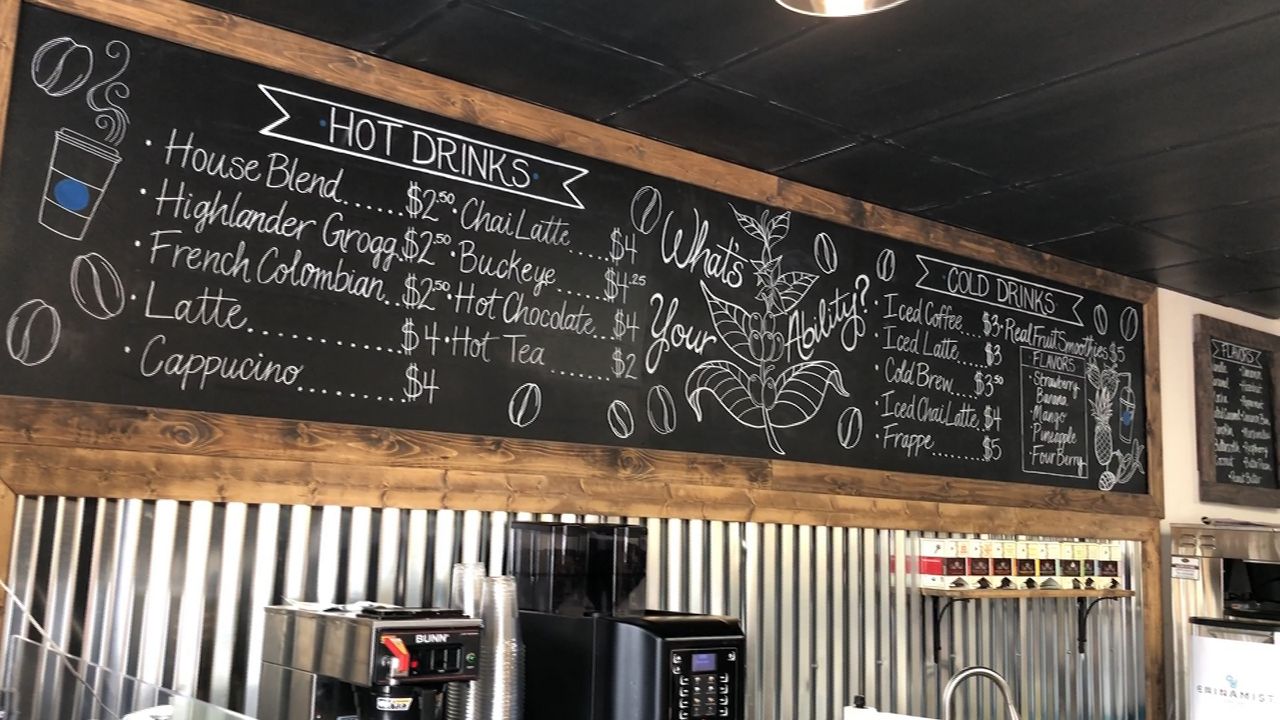 HOT DRINKS
· House Blend......$2.50
· Highlander Grogg.$2.50
· French Colombian...$2.50
· Latte................$4
· Cappucino.........$4
· Chai Latte.....$4
· Buckeye......$4.25
· Hot Chocolate...$4
· Hot Tea........$2
What's
Your
Ability?
COLD DRINKS
· Iced Coffee...$3
· Iced Latte....$3
· Cold Brew....$3.50
· Iced Chai Latte.$4
· Frappe.........$5
· Real Fruit Smoothies $5
FLAVORS
· Strawberry
Banana
· Mango
· Pineapple
· Four Berry
FLAVORS
BUNN